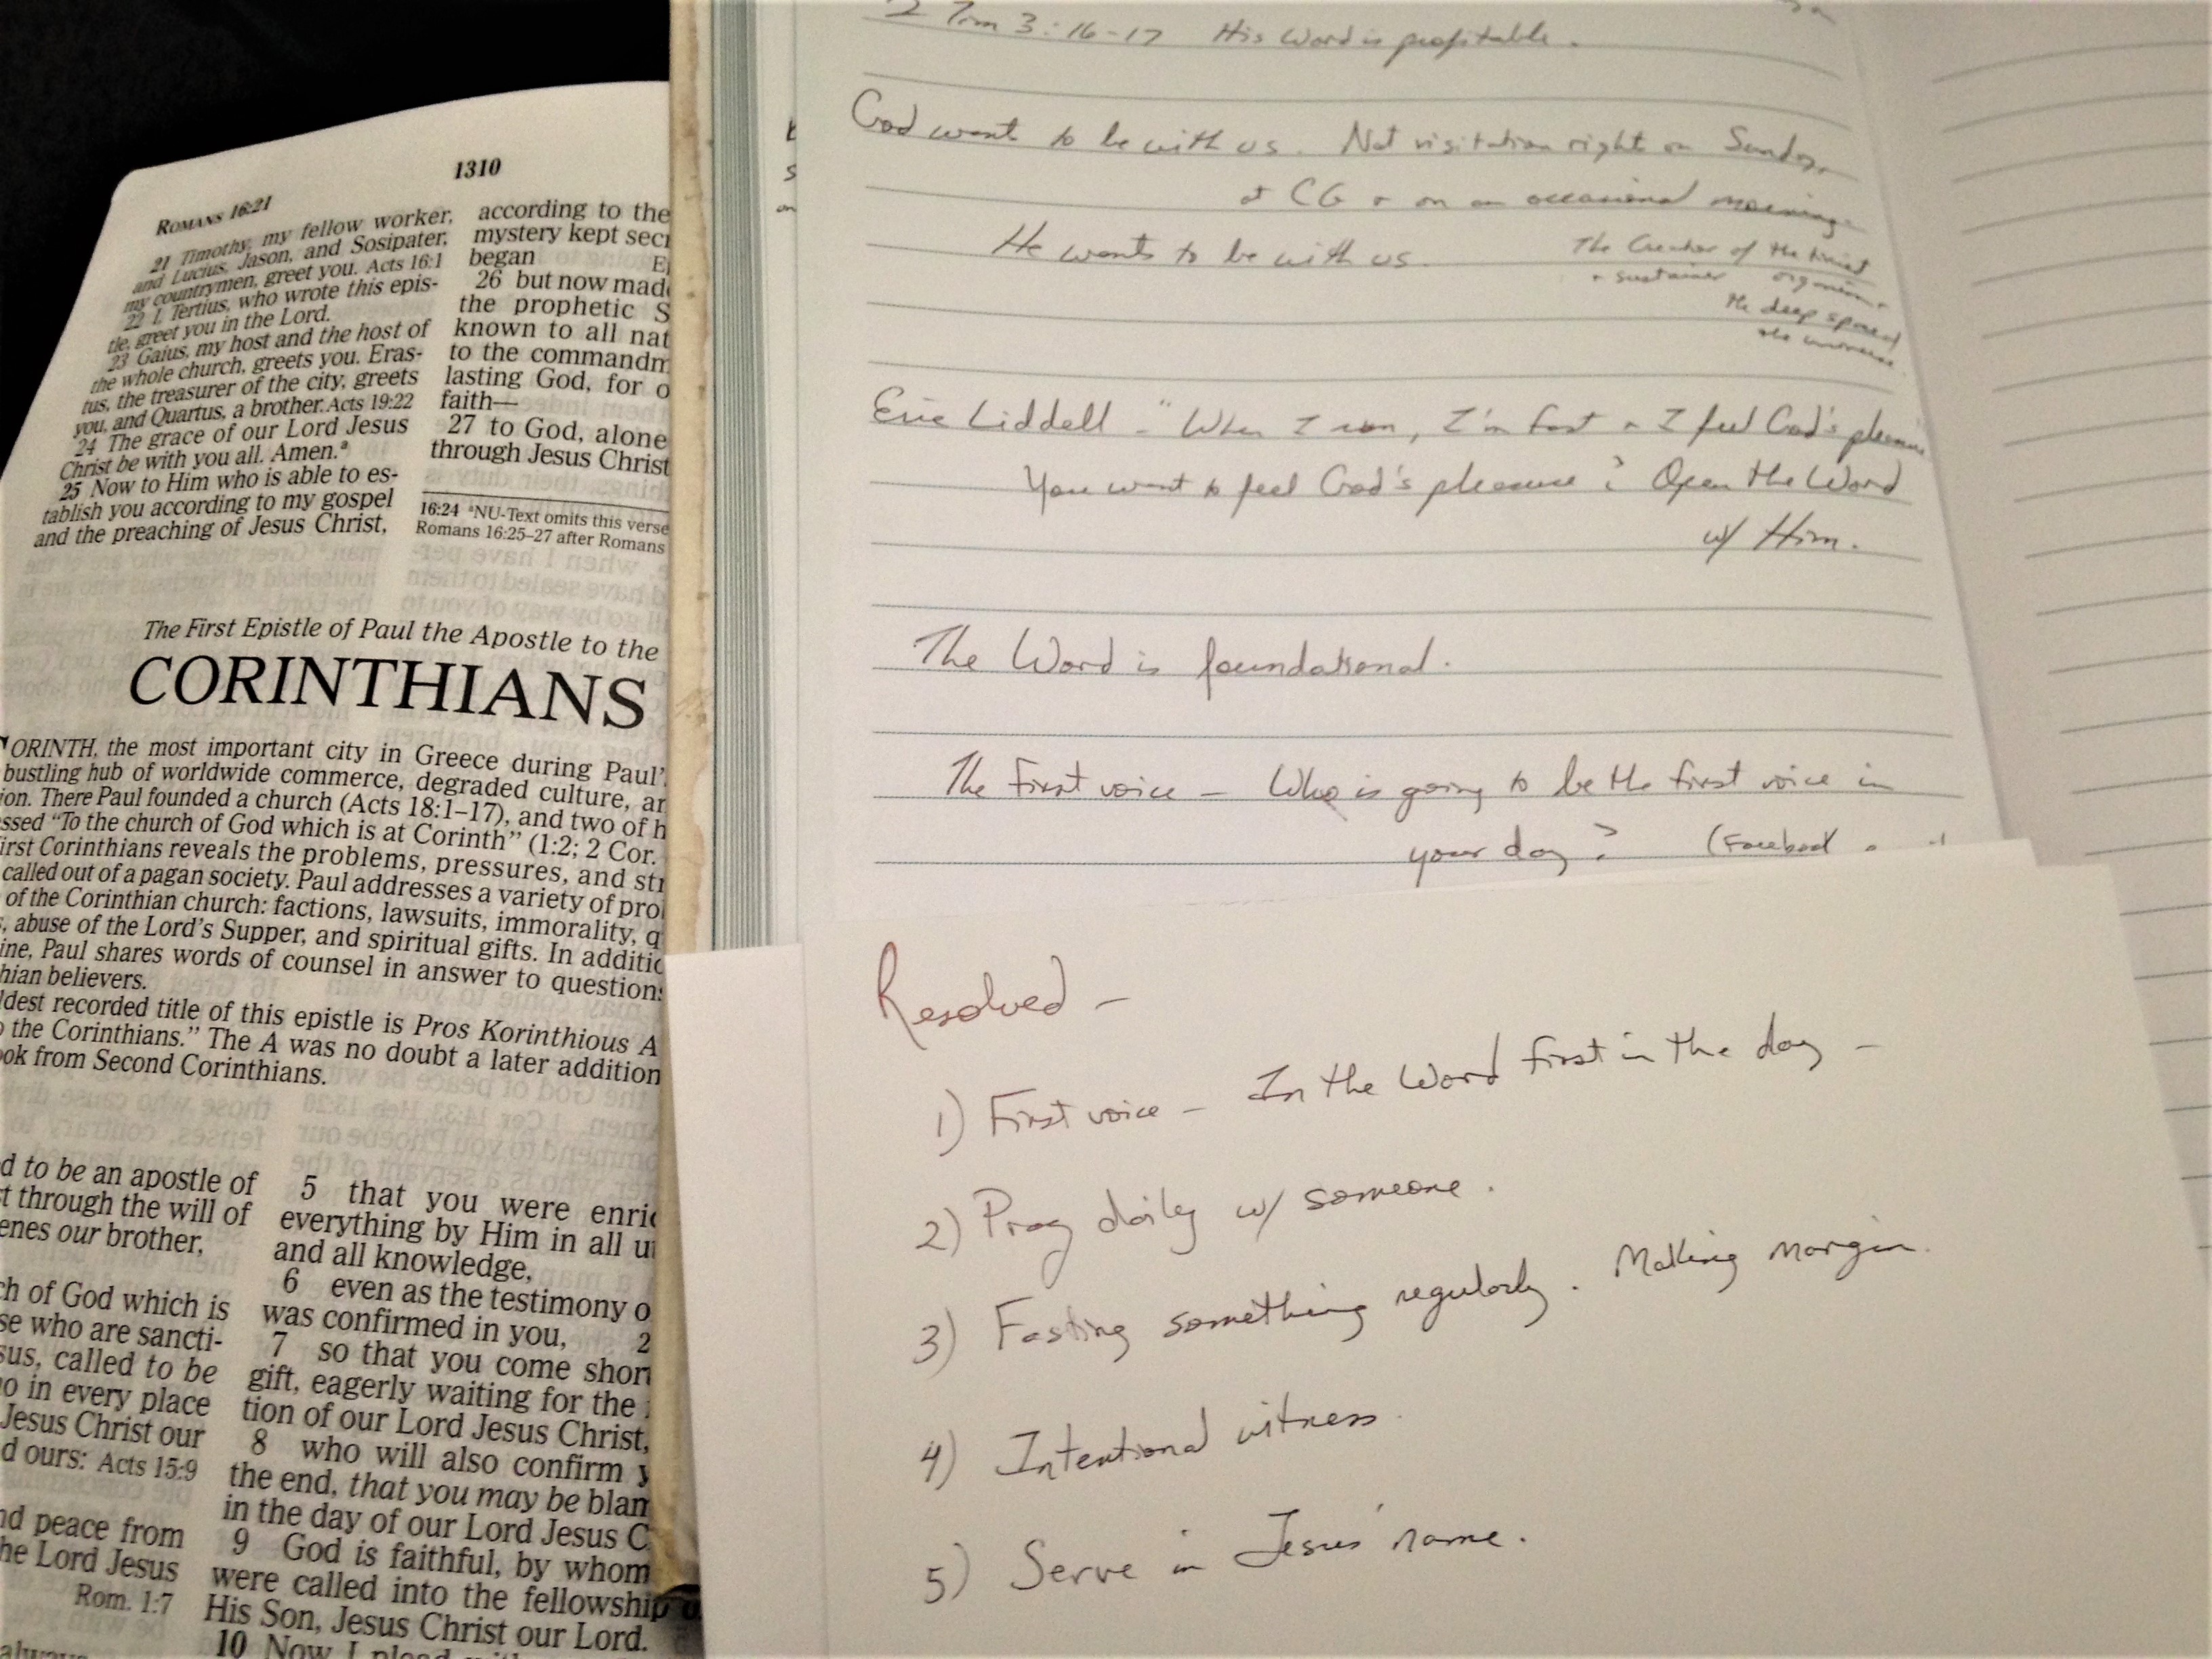 1310
ROMANS 16:21
21 Timothy, my fellow worker,
and Lucius, Jason, and Sosipater,
my countrymen, greet you. Acts 16:1
22 I, Tertius, who wrote this epis-
tle, greet you in the Lord.
23 Gaius, my host and the host of
the whole church, greets you. Eras-
tus, the treasurer of the city, greets
you, and Quartus, a brother. Acts 19:22
24 The grace of our Lord Jesus
Christ be with you all. Amen.ª
25 Now to Him who is able to es-
tablish you according to my gospel
and the preaching of Jesus Christ,
according to the
mystery kept
began
26 but now
the prophetic
known to all
to the
lasting God, for
faith—
27 to God, alone
through Jesus Christ
16:24 ªNU-Text omits this verse
Romans 16:25–27 after Romans
The First Epistle of Paul the Apostle to the
CORINTHIANS
CORINTH, the most important city in Greece during Paul'
bustling hub of worldwide commerce, degraded culture,
There Paul founded a church (Acts 18:1–17), and two of
"To the church of God which is at Corinth" (1:2; 2 Cor.
First Corinthians reveals the problems, pressures, and
called out of a pagan society. Paul addresses a variety of
of the Corinthian church: factions, lawsuits, immorality,
abuse of the Lord's Supper, and spiritual gifts. In
Paul shares words of counsel in answer to
believers.
recorded title of this epistle is Pros Korinthious A
the Corinthians." The A was no doubt a later addition
from Second Corinthians.
to be an apostle of
through the will of
our brother,
of God which is
who are sancti-
called to be
in every place
Jesus Christ our
ours: Acts 15:9
peace from
Lord Jesus
Rom. 1:7
5 that you were
everything by Him in all
and all knowledge,
6 even as the testimony
was confirmed in you, 2
7 so that you come
gift, eagerly waiting for the
tion of our Lord Jesus Christ,
8 who will also confirm
the end, that you may be
in the day of our Lord Jesus
9 God is faithful, by whom
were called into the fellowship
His Son, Jesus Christ our Lord.
10 Now I
2 Tim 3:16-17 His Word is profitable.
God want to be with us. Not visitation right on Sunday,
at CG + on an occasional morning.
He wants to be with us.
The Creator of the tiniest
+ sustainer organism,
the deep space
the universe
Eric Liddell - "When I run, I'm fast + I feel God's pleasure
You want to feel God's pleasure? Open the Word
w/ Him.
The Word is foundational.
The First voice - Who is going to be the first voice in
your day? (Facebook
Resolved -
1) First voice - In the Word first in the day -
2) Pray daily w/ someone.
3) Fasting something regularly. Making margin.
4) Intentional witness.
5) Serve in Jesus' name.